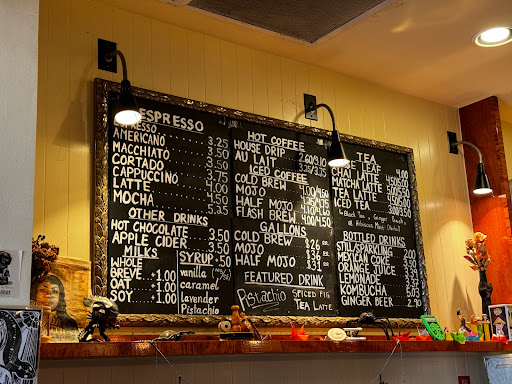 ESPRESSO
ESPRESSO
AMERICANO 3.25
MACCHIATO 3.50
CORTADO 3.50
CAPPUCCINO 3.75
LATTE 4.00
MOCHA 4.50
OTHER DRINKS
HOT CHOCOLATE 3.50
APPLE CIDER 3.50
MILKS
WHOLE
BREVE +1.00
OAT +1.00
SOY +1.00
SYRUP .50
vanilla
caramel
lavender
Pistachio
HOT COFFEE
HOUSE DRIP 2.60/3.10
AU LAIT 3.25/3.75
ICED COFFEE
COLD BREW 4.00/4.50
MOJO
HALF MOJO
FLASH BREW
GALLONS
COLD BREW $26
MOJO $36
HALF MOJO $31
FEATURED DRINK
Pistachio
SPICED FIG
TEA LATTE
TEA
LEAF
CHAI LATTE
MATCHA LATTE
TEA LATTE
ICED TEA
BOTTLED DRINKS
STILL/SPARKLING
MEXICAN COKE
ORANGE JUICE
LEMONADE
KOMBUCHA
GINGER BEER